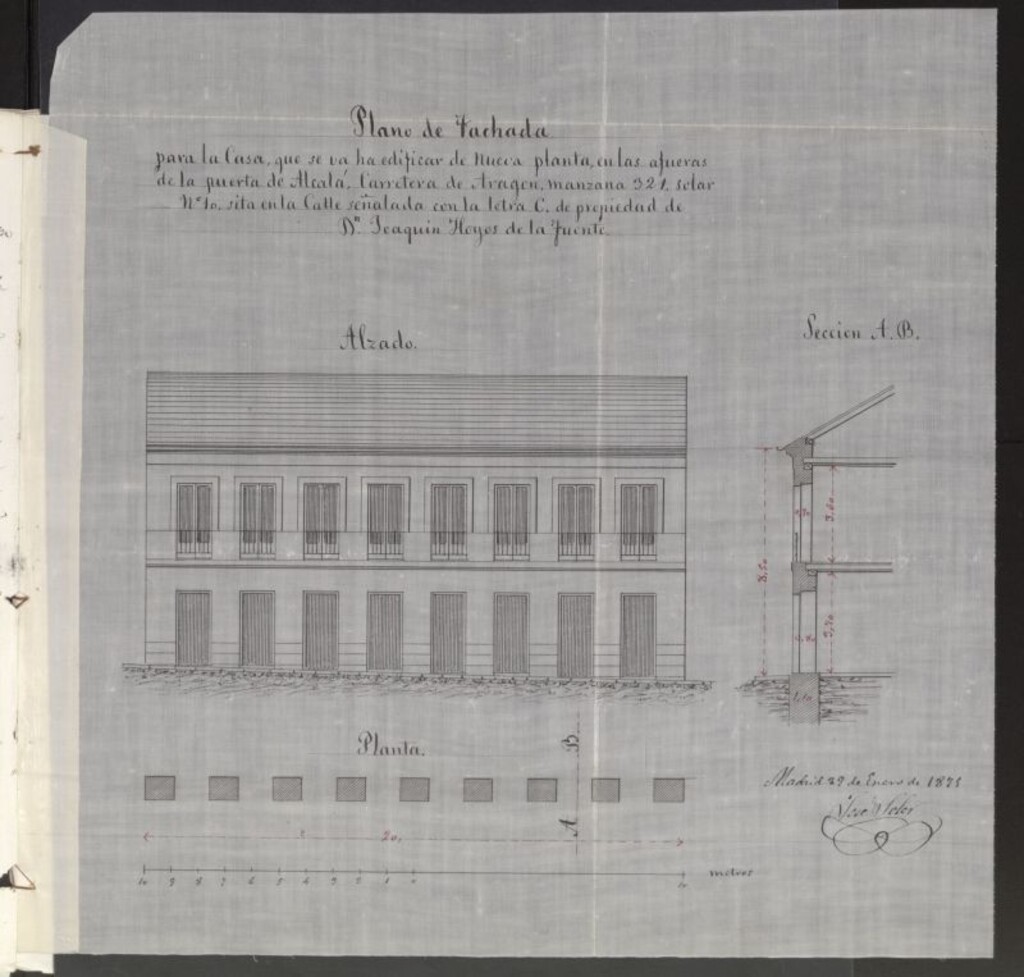 Plano de Fachada
para la Casa, que se va ha edificar de Nueva planta, en las afueras
de la puerta de Alcalá, Carretera de Aragon, manzana 321, solar
Nº 10. sita en la Calle señalada con la letra C. de propiedad de
Dn Joaquin Hoyos de la Fuente
Alzado.
Seccion A. B.
8,50
3.60
1,10
Planta.
B
A
20,
Madrid 29 de Enero de 1875
José
10 9 8 7 6 5 4 3 2 1 0 10 metros